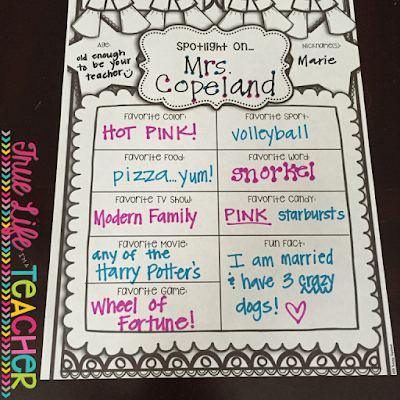 Age:
old enough
to be your
teacher
Spotlight On...
Mrs.
Copeland
Nickname(s):
Marie
Favorite Color:
HOT PINK!
Favorite Sport:
volleyball
Favorite Food:
pizza...yum!
Favorite Word:
snorkel
Favorite TV Show:
Modern Family
Favorite Candy:
PINK starbursts
Favorite Movie:
any of the
Harry Potter's
Fun Fact:
I am married
& have 3 crazy
dogs!
Favorite Game:
Wheel of
Fortune!
True Life
I'm a
TEACHER